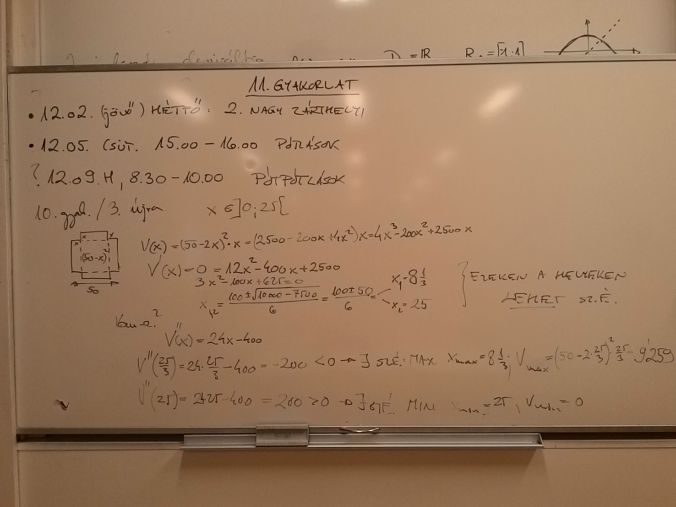 D = ℝ R = [-1 1]
11. GYAKORLAT
• 12.02. (jövő) HÉTFŐ: 2. NAGY ZÁRTHELYI
• 12.05. CSÜT. 15.00 - 16.00 PÓTLÁSOK
? 12.09. H, 8.30 - 10.00 PÓTPÓTLÁSOK
10. gyak. / 3. újra x ∈ ]0; 25[
x x
V(x) = (50-2x)²·x = (2500 - 200x + 4x²)x = 4x³ - 200x² + 2500x
(50-x)²
50
V'(x) = 0 = 12x² - 400x + 2500
3x² - 100x + 625 = 0
x₁,₂ = (100 ± √(10000 - 7500))/6 = (100 ± 50)/6
x₁ = 8 1/3
x₂ = 25
} EZEKEN A HELYEKEN
LEHET SZ.É.
Van-e?
V''(x) = 24x - 400
V''(25/3) = 24·25/3 - 400 = -200 < 0 → ∃ SZÉ: MAX x max = 8 1/3; V max = (50 - 2·25/3)² 25/3 = 9259
V''(25) = 400 = 200 > 0 → ∃ SZÉ. MIN x min = 25, V min = 0